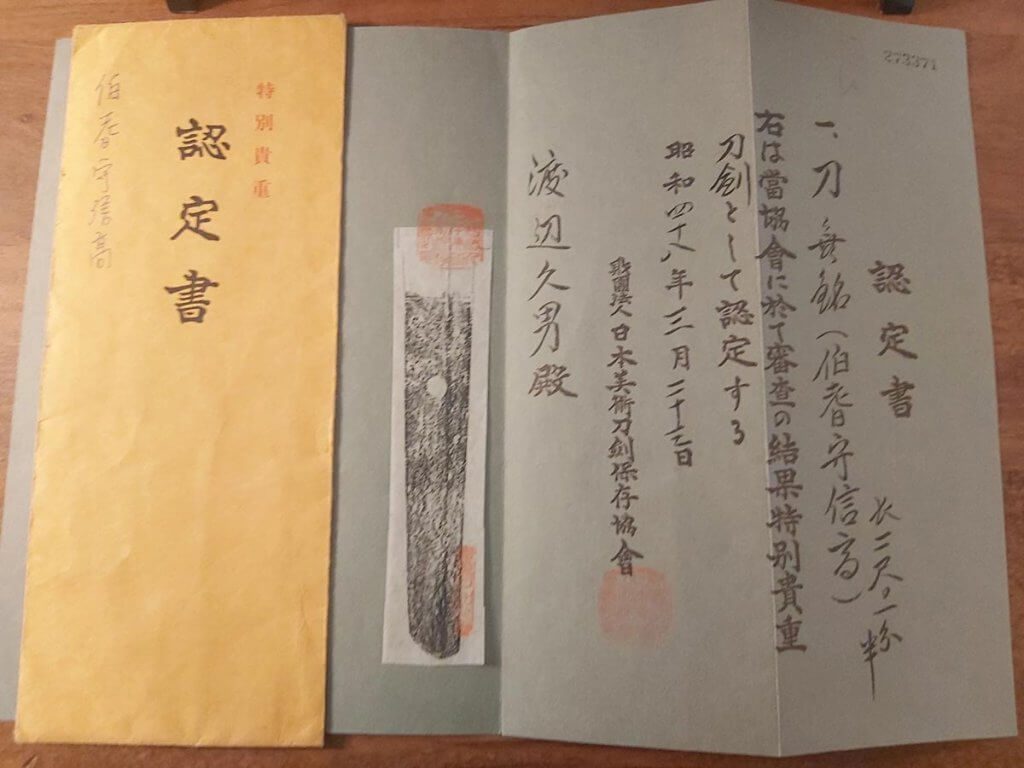 273371
認定書
一、刀 無銘(伯耆守信高)
長二尺、一分半
右は當協會に於て審査の結果特別貴重
刀劍として認定する
昭和四十八年三月二十三日
財團法人日本美術刀劍保存協會
渡辺久男殿
特別貴重
認定書
伯耆守信高